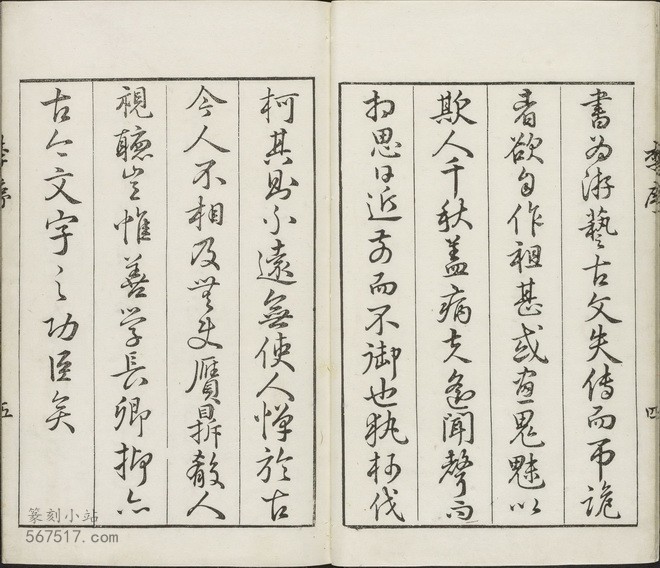 書為游藝古文失傳而弔詭
者欲自作祖甚或畫鬼魅以
欺人千秋蓋病夫遙聞聲而
相思日近前而不御也執柯伐
柯其則不遠無使人憚於古
今人不相及無史贗鼎殽人
視聽豈惟善學長卿抑亦
古今文字之功臣矣
四
五
篆刻小站
567517.com